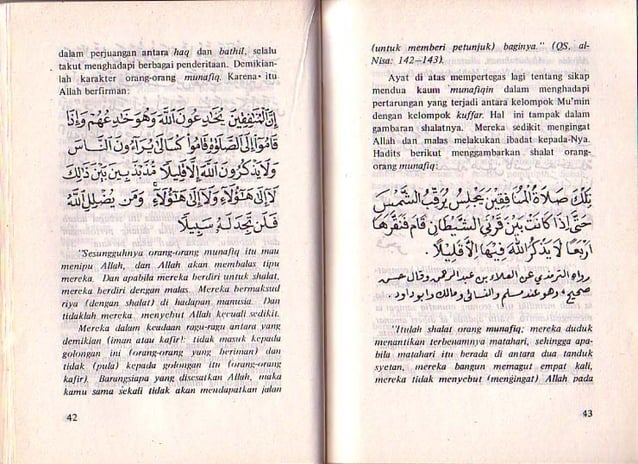 dalam perjuangan antara haq dan bathil, selalu
takut menghadapi berbagai penderitaan. Demikian-
lah karakter orang-orang munafiq. Karena itu
Allah berfirman:
إِنَّ الْمُنَافِقِينَ يُخَادِعُونَ اللَّهَ وَهُوَ خَادِعُهُمْ وَإِذَا
قَامُوا إِلَى الصَّلَاةِ قَامُوا كُسَالَىٰ يُرَاءُونَ النَّاسَ
وَلَا يَذْكُرُونَ اللَّهَ إِلَّا قَلِيلًا مُذَبْذَبِينَ بَيْنَ ذَٰلِكَ
لَا إِلَىٰ هَٰؤُلَاءِ وَلَا إِلَىٰ هَٰؤُلَاءِ وَمَن يُضْلِلِ اللَّهُ
فَلَن تَجِدَ لَهُ سَبِيلًا
"Sesungguhnya orang-orang munafiq itu mau
menipu Allah, dan Allah akan membalas tipu
mereka. Dan apabila mereka berdiri untuk shalat,
mereka berdiri dengan malas. Mereka bermaksud
riya (dengan shalat) di hadapan manusia. Dan
tidaklah mereka menyebut Allah kecuali sedikit.
Mereka dalam keadaan ragu-ragu antara yang
demikian (iman atau kafir): tidak masuk kepada
golongan ini (orang-orang yang beriman) dan
tidak (pula) kepada golongan itu (orang-orang
kafir). Barangsiapa yang disesatkan Allah, maka
kamu sama sekali tidak akan mendapatkan jalan
42
(untuk memberi petunjuk) baginya." (QS, al-
Nisa: 142–143).
Ayat di atas mempertegas lagi tentang sikap
mendua kaum munafiqin dalam menghadapi
pertarungan yang terjadi antara kelompok Mu'min
dengan kelompok kuffar. Hal ini tampak dalam
gambaran shalatnya. Mereka sedikit mengingat
Allah dan malas melakukan ibadat kepada-Nya.
Hadits berikut menggambarkan shalat orang-
orang munafiq:
تِلْكَ صَلَاةُ الْمُنَافِقِيْنَ يَجْلِسُ يَرْقُبُ الشَّمْسَ
حَتَّى إِذَا كَانَتْ بَيْنَ قَرْنَيِ الشَّيْطَانِ قَامَ فَنَقَرَهَا
أَرْبَعًا لَا يَذْكُرُ اللهَ فِيْهَا إِلَّا قَلِيْلًا.
رواه الترمذي عن العلاء بن عبد الرحمن وقال حسن
صحيح، وهو عند مسلم والنسائى ومالك وابو داود.
"Itulah shalat orang munafiq; mereka duduk
menantikan terbenamnya matahari, sehingga apa-
bila matahari itu berada di antara dua tanduk
syetan, mereka bangun memagut empat kali,
mereka tidak menyebut (mengingat) Allah pada
43